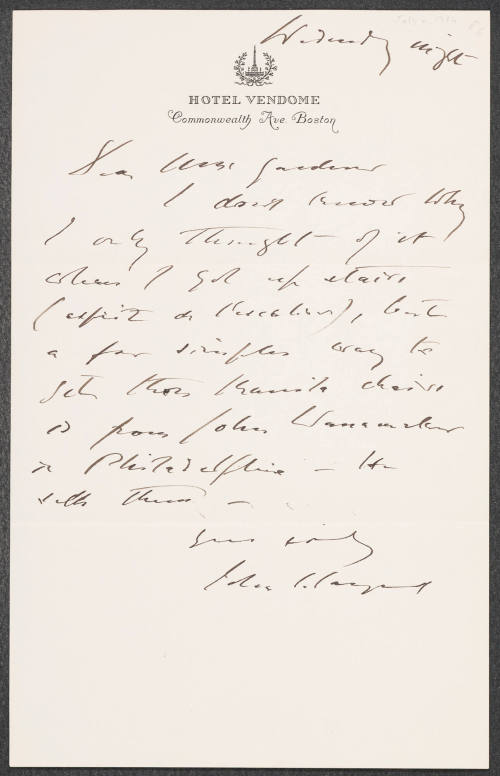 Wednesday night
HOTEL VENDOME
Commonwealth Ave. Boston
Dear Mrs Gardner
I don't know why
I only thought of it
when I got up stairs
(esprit de l'escalier), but
a far simpler way to
get those Manila chairs
is from John Wanamaker
in Philadelphia – He
sells them –
Yours sincerely
John S. Sargent